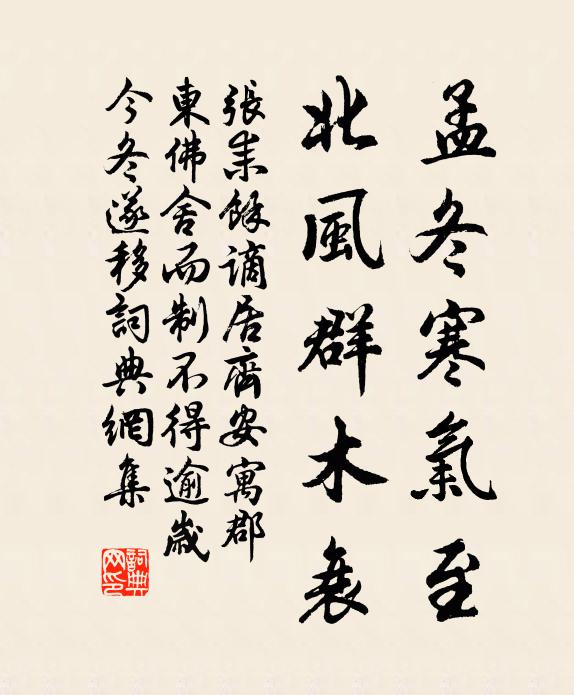 孟冬寒氣至
北風群木衰
張耒餘謫居齊安寓郡
東佛舍而制不得逾歲
今冬遂移詞典網集
詞典
网印